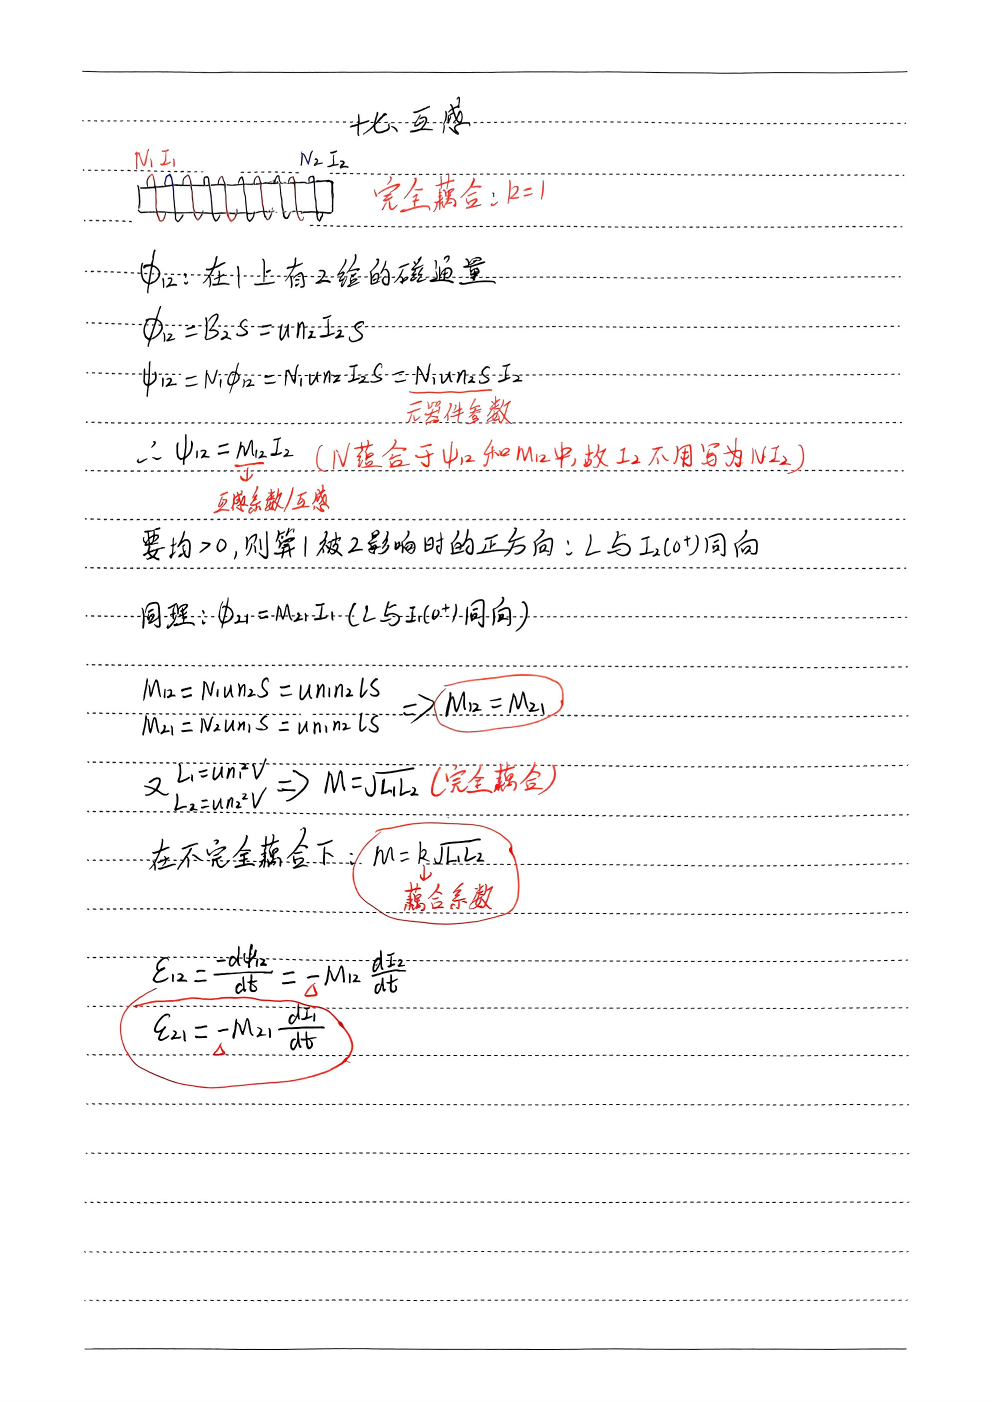 十七、互感
N₁ I₁ N₂ I₂
完全藕合：k=1
ϕ₁₂：在1上有2给的磁通量
ϕ₁₂=B₂S=un₂I₂S
ψ₁₂=N₁ϕ₁₂=N₁un₂I₂S=N₁un₂S I₂
元器件参数
∴ ψ₁₂=M₁₂I₂ (N蕴合于ψ₁₂和M₁₂中,故I₂不用写为NI₂)
互感系数/互感
要均>0,则算1被2影响时的正方向：L与I₂(0⁺)同向
同理：ϕ₂₁=M₂₁I₁(L与I₁(0⁺)同向)
M₁₂=N₁un₂S=un₁n₂lS
M₂₁=N₂un₁S=un₁n₂lS => M₁₂=M₂₁
又 L₁=un₁²V
L₂=un₂²V => M=√L₁L₂ (完全藕合)
在不完全藕合下：M=k√L₁L₂
藕合系数
ε₁₂=-dψ₁₂/dt=-M₁₂ dI₂/dt
ε₂₁=-M₂₁ dI₁/dt